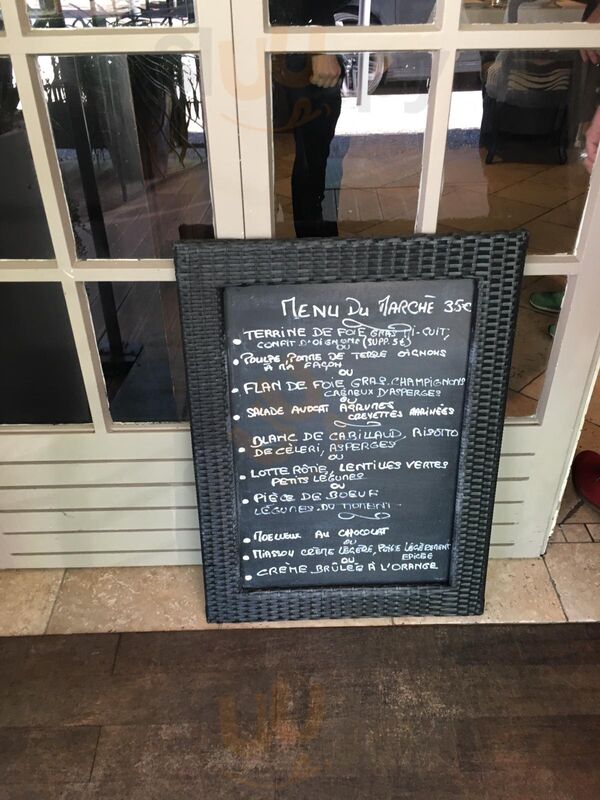 MENU DU MARCHÈ 35€
TERRINE DE FOIE GRAS MI-CUIT,
CONFIT D'OIGNONS (SUPP. 5€)
OU
POULPE, POMME DE TERRE OIGNONS
À MA FAÇON
OU
FLAN DE FOIE GRAS, CHAMPIGNONS
CRÉMEUX D'ASPERGES
OU
SALADE AVOCAT AGRUMES
CREVETTES MARINÉES
BLANC DE CABILLAUD, RISOTTO
DE CÈLERI, ASPERGES
OU
LOTTE RÔTIE, LENTILLES VERTES
PETITS LÉGUMES
OU
PIÈCE DE BOEUF
LÉGUMES DU MOMENT
MOELLEUX AU CHOCOLAT
OU
CRÈME LÉGÈRE, POIRE LÉGÈREMENT
EPICÉE
OU
CRÈME BRÛLÉE À L'ORANGE